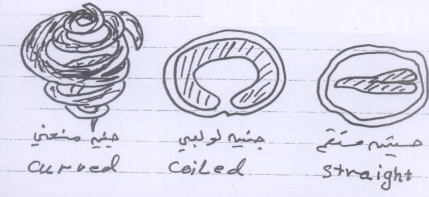 جنين منحني
curved
جنين لولبي
coiled
جنين مستقيم
straight